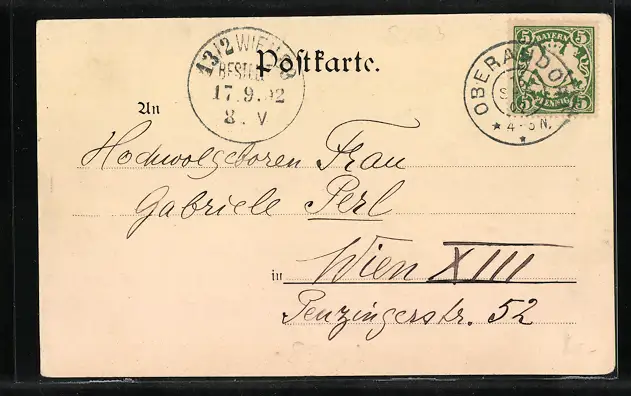 Postkarte.
13/2 WIEN
BESTELLT
17.9.02
8. V
BAYERN
5 5
5 PFENNIG 5
OBERAUDORF
4-5 N.
An
Hochwolgeboren Frau
Gabriele Perl
in Wien XIII
Penzingerstr. 52